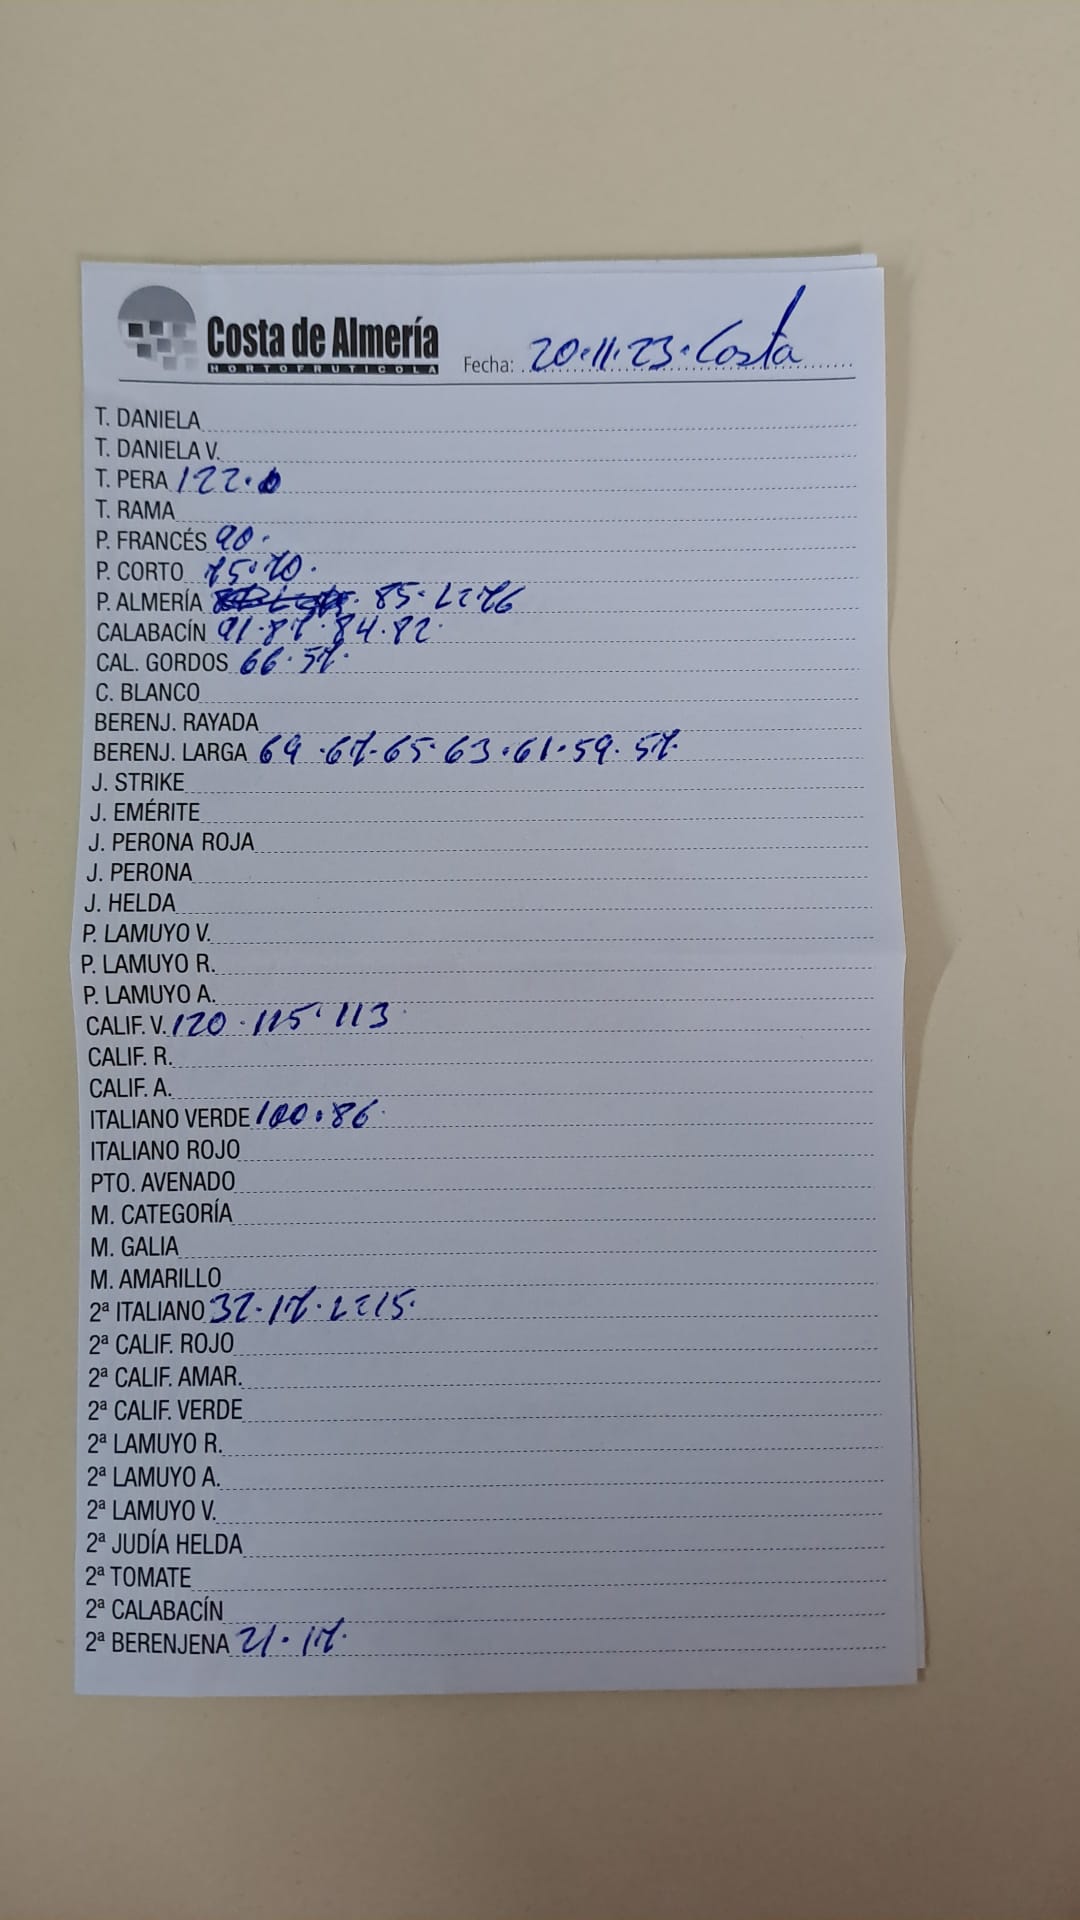 Costa de Almería
HORTOFRUTICOLA
Fecha: 20.11.23. Costa
T. DANIELA
T. DANIELA V.
T. PERA 122.
T. RAMA
P. FRANCÉS 90.
P. CORTO 75.70.
P. ALMERÍA 85. L=76
CALABACÍN 91.87.84.82.
CAL. GORDOS 66.57.
C. BLANCO
BERENJ. RAYADA
BERENJ. LARGA 69.67.65.63.61.59.57.
J. STRIKE
J. EMÉRITE
J. PERONA ROJA
J. PERONA
J. HELDA
P. LAMUYO V.
P. LAMUYO R.
P. LAMUYO A.
CALIF. V. 120.115.113.
CALIF. R.
CALIF. A.
ITALIANO VERDE 100.86.
ITALIANO ROJO
PTO. AVENADO
M. CATEGORÍA
M. GALIA
M. AMARILLO
2ª ITALIANO 32.17. L=15.
2ª CALIF. ROJO
2ª CALIF. AMAR.
2ª CALIF. VERDE
2ª LAMUYO R.
2ª LAMUYO A.
2ª LAMUYO V.
2ª JUDÍA HELDA
2ª TOMATE
2ª CALABACÍN
2ª BERENJENA 21.17.